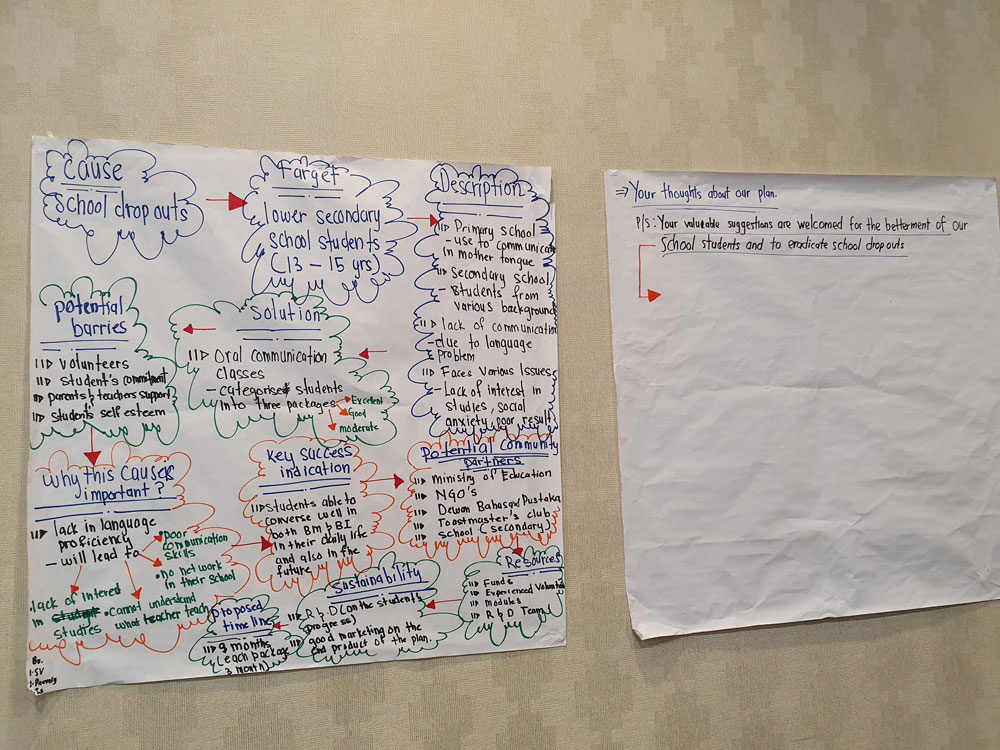 Cause
School drop outs
Target
lower secondary
school students
(13 - 15 yrs)
Description
Primary school
- use to communicate
in mother tongue
Secondary school
- Students from
various background
lack of communication
- due to language
problem
Faces Various Issues
- Lack of interest in
studies, social
anxiety, poor result
Solution
Oral communication
classes
- categorised students
into three packages
Excellent
Good
moderate
Potential
barries
volunteers
student's commitment
parents & teachers support
students self esteem
Why this cause is
important?
lack in language
proficiency
- will lead to
• Poor
communication
skills
• no network
in their school
• Cannot understand
what teacher teach
• lack of intered
in
studies
Key Success
indication
students able to
converse well in
both BM & BI
in their daily life
and also in the
future
Potential Community
partners
Ministry of Education
NGO's
Dewan Bahasa & Pustaka
Toastmaster's club
school (secondary)
Resources
Funds
Experienced Volunteers
Modules
R & D Team
Sustainability
R & D (on the student's
progress)
good marketing on the
end product of the plan.
Proposed
timeline
9 months
(each package
3 month)
By.
1. SV
⇒ Your thoughts about our plan.
P/s: Your valuable suggestions are welcomed for the betterment of our
School students and to eradicate school drop outs